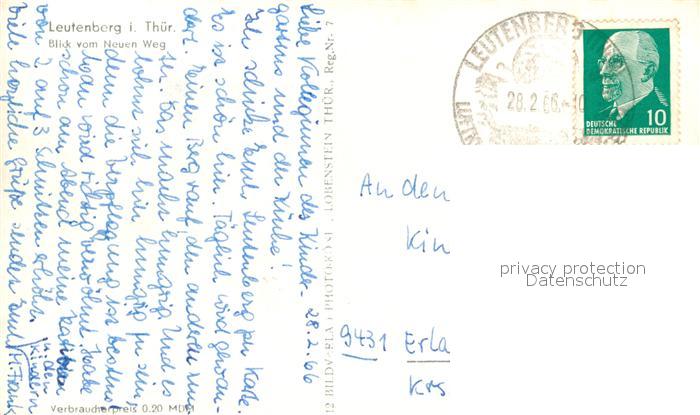 Leutenberg i. Thür.
Blick vom Neuen Weg
28.2.66
Liebe Kolleginnen des Kinder-
gartens und der Küche!
Ich schicke Euch Leutenberg per Karte.
Es ist schön hier. Täglich wird gewan-
dert. Einen Berg rauf den anderen run-
ter. Das macht hungrig und es
lohnt sich hier hungrig zu sein,
denn die Verpflegung ist bestens!
Man wird richtig verwöhnt. Habe
schon am Abend meine Ration
von 2 auf 3 Schnitten erhöht.
Viele herzliche Grüße senden Euch
u. den Kindern
H. Frank
Verbraucherpreis 0.20 MDN
LOBENSTEIN THÜR., Reg.-Nr. 7
LEUTENBERG
28.2.66.-10
DEUTSCHE
DEMOKRATISCHE REPUBLIK
10
An den
Kin
9431 Erla
Krs
privacy protection
Datenschutz